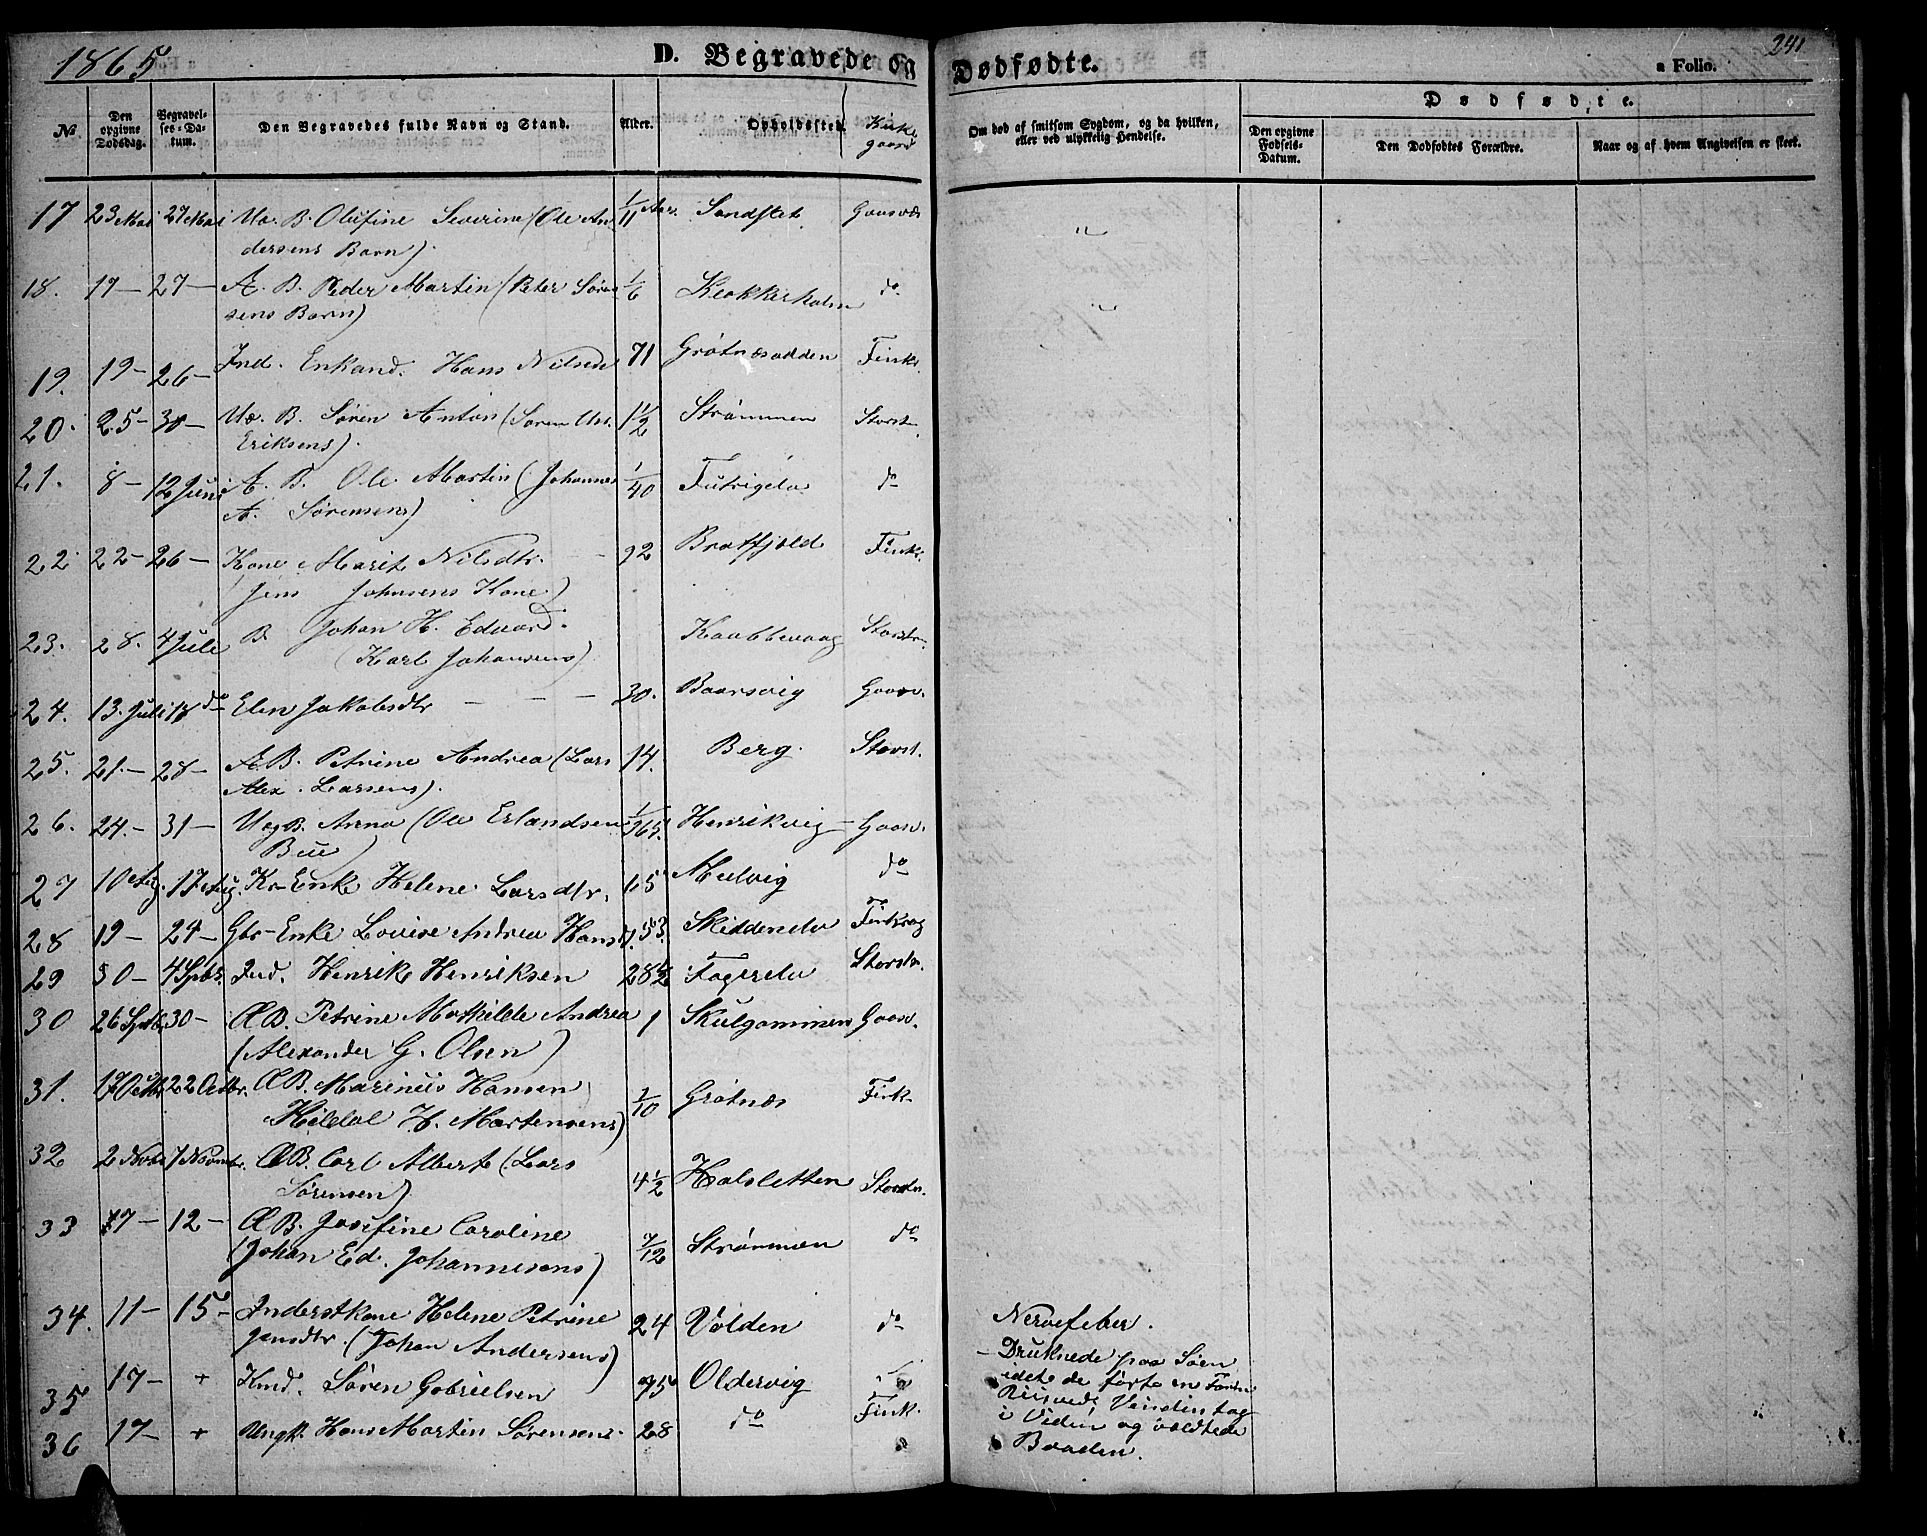 1865
D. Begravede og Dødfødte.
241
a Folio.
No.
Den opgivne Dødsdag.
Begravel-
ses-Da-
tum.
Den Begravedes fulde Navn og Stand.
Alder.
Opholdssted.
Kirke
gaard
Om død af smitsom Sygdom, og da hvilken,
eller ved ulykkelig Hendelse.
Dødfødte.
Den opgivne
Fødsels-
Datum.
Den Dødfødtes Forældre.
Naar og af hvem Angivelsen er skeet.
17 23 Mai 27 Mai Uæ. B. Olufine Severine (Ole An 1/11 Aar. Sandslet. Gaasvær
dersens Barn)
18. 17 – 27 – Æ. B. Peder Martin (Peter Søren 1/6 Klokkerholm do
sens Barn)
19. 19 – 26 – Ind. Enkand. Hans Nilsen 71 Grøtnæsodden Finkr.
20. 25 – 30 – Uæ. B. Søren Anton (Søren 1 1/2 Strømmen Storst.
Eriksens).
21. 8 – 12 Juni Æ. B. Ole Martin (Johannes 1/40 Futrigelv do
A. Sørensens)
22 22 – 26 – Kone Marit Nilsdtr. – 92 Bratfjeld Finkr.
(Jens Johnsens Kone)
23. 28. 4 Juli B. Johan H. Edvard. Kaabbevaag Storstr.
(Karl Johansens)
24. 13. Juli 18 do Elen Jakobsdtr – – – 30. Baarsvig Gaasv.
25. 21. – 28 – Æ. B. Petrine Andrea (Lars 14. Berg. Storst.
Alex. Larsens).
26. 24. – 31 – Uæg B. Anna (Ole Erlandsen 1/365. Henrikvig – Gaasv.
Bue)
27 10 Aug. 17 Aug. Ks-Enke Helene Larsdtr. 65 Mulvig do
28 19 – 24 – Gbr-Enke Lovise Andrea Hansd. 53. Skiddenelv Finkrog
29 30 – 4 Spbr. Ind. Henrik Henriksen 28 1/2 Fagerelv Storstr.
30 26 Sptb. 30 – ÆB. Petrine Mathilde Andrea 1 Skulgammen Gaasv.
(Alexander G. Olsen)
31. 17 Octbr 22 Octbr. ÆB. Marinius Hansen
Kildal H. Mortensens) 1/10 Grøtnæs Fink.
32 2 Novbr 7 Novmbr. ÆB. Carl Albert (Lars
Sørensen) 4 1/2 Halsletten Storstr.
33 7 – 12 – ÆB. Josefine Caroline
(Johan Ed. Johannesens) 7/12 Strømmen do
34. 11 – 15 – Inderstkone Helene Petrine
Jensdtr. (Johan Andersens) 24 Volden do Nervefeber.
35 17 – + Kmd. Søren Gabrielsen 75 Oldervig – Druknede paa Søen
idet de førte en
36 17 – + Ungk. Hans Martin Sørensens. 28 do Fink.
Vinden tog
i Veden og væltede
Baaden.